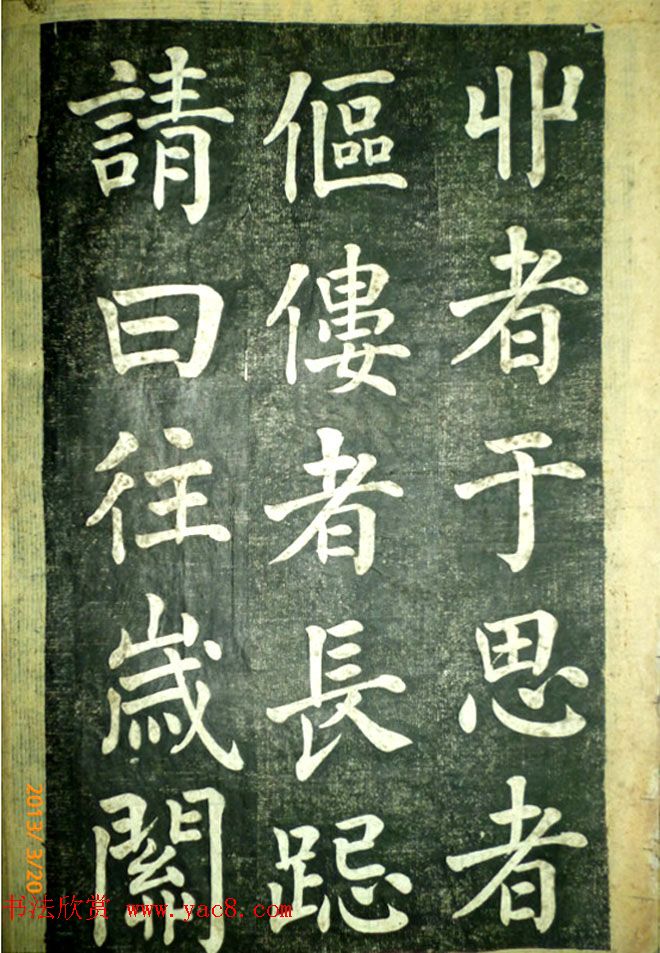 丱者于思者
傴僂者長跽
請曰往歲關
2013/3/20
书法欣赏 www.yac8.com